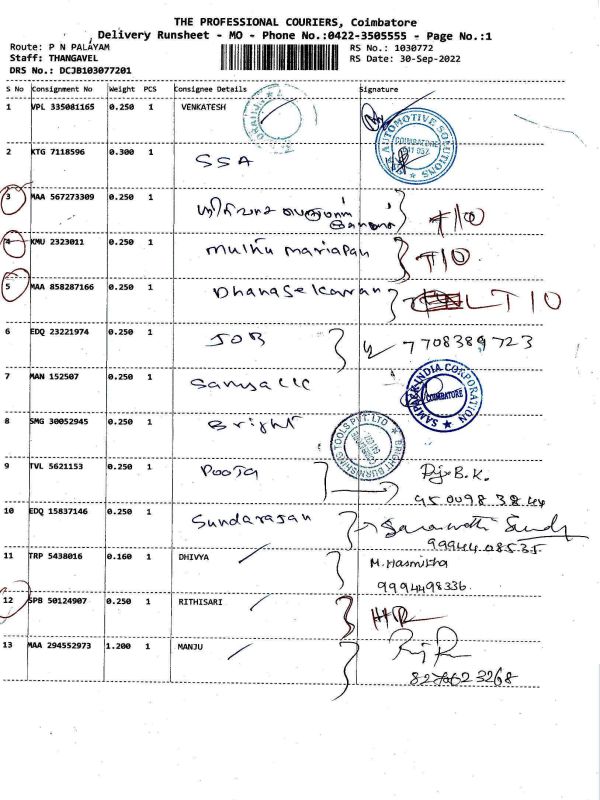 THE PROFESSIONAL COURIERS, Coimbatore
Delivery Runsheet - MO - Phone No.:0422-3505555 - Page No.:1
Route: P N PALAYAM RS No.: 1030772
Staff: THANGAVEL RS Date: 30-Sep-2022
DRS No.: DCJB103077201
S No Consignment No Weight PCS Consignee Details Signature
1 VPL 335081165 0.250 1 VENKATESH
AUTOMOTIVE SOLUTIONS
COIMBATORE
2 KTG 7118596 0.300 1 SSA
3 MAA 567273309 0.250 1
4 KMU 2323011 0.250 1 muthu mariapan T10
5 MAA 858287166 0.250 1 Dhanaselkaran LT10
6 EDQ 23221974 0.250 1 JOB 7708389723
7 MAN 152507 0.250 1
SAMPACK INDIA CORPORATION
COIMBATORE
8 SMG 30052945 0.250 1 Bright
BRIGHT BURNISHING TOOLS PVT. LTD
9 TVL 5621153 0.250 1 Pooja B.K.
95 0098 38 44
10 EDQ 15837146 0.250 1 Sundarajan
99944 08535
11 TRP 5438016 0.160 1 DHIVYA M. Hasmitha
9994498336
12 SPB 50124907 0.250 1 RITHISARI
13 MAA 294552973 1.200 1 MANJU